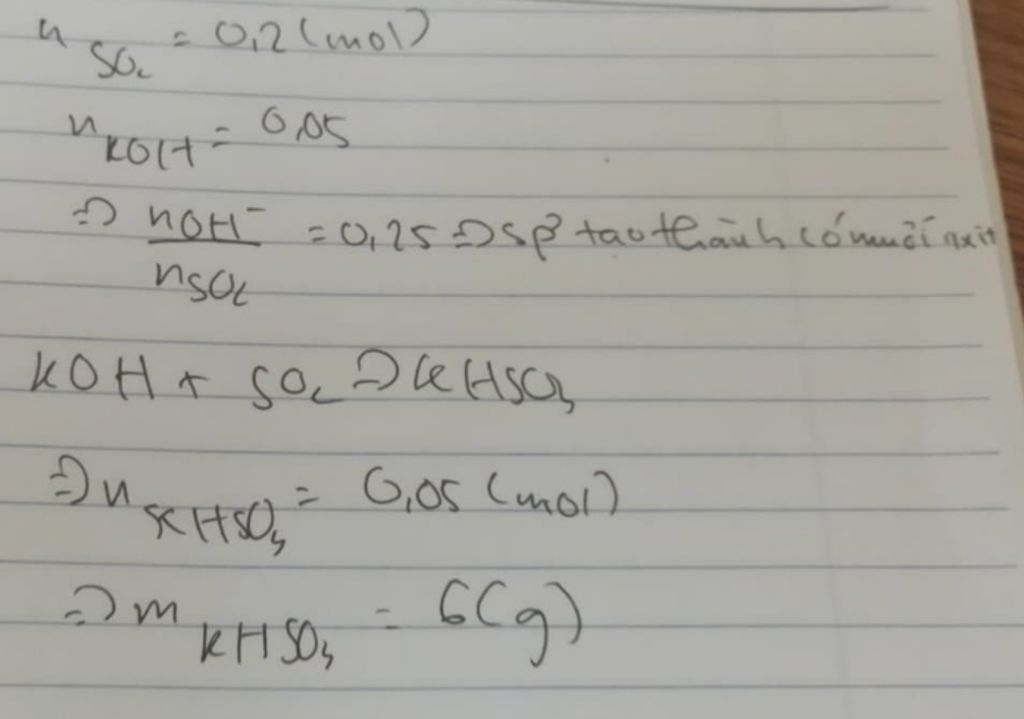 n SO₂ = 0,2 (mol)
n KOH = 0,05
=> nOH⁻ / nSO₂ = 0,25 => sp² tạo thành có muối axit
KOH + SO₂ => KHSO₃
=> n KHSO₃ = 0,05 (mol)
=> m KHSO₃ = 6(g)